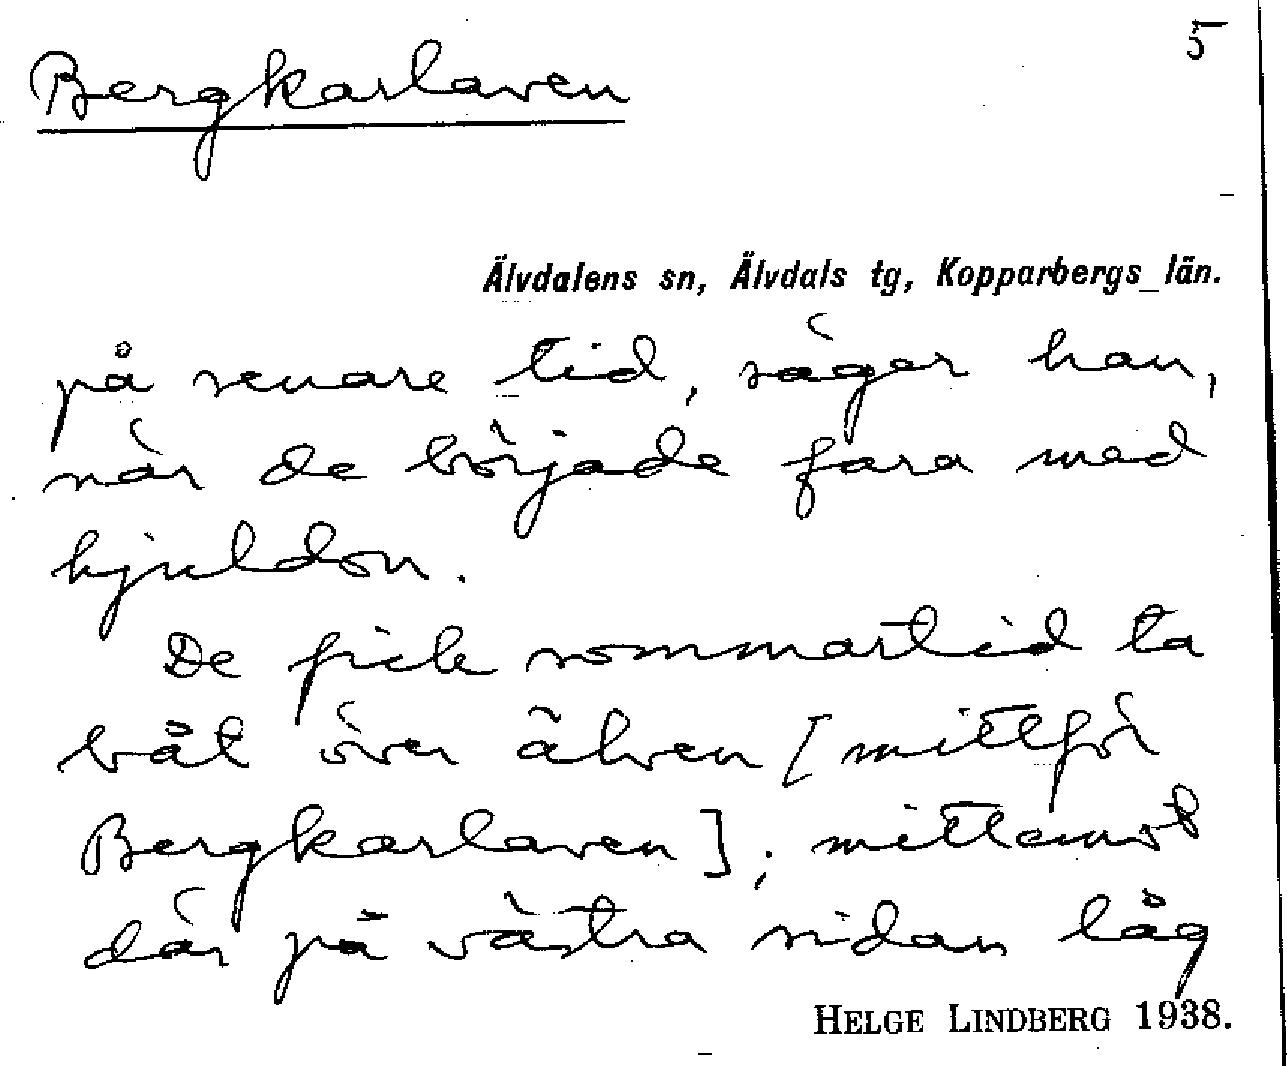 5
Bergkarlaven
Älvdalens sn, Älvdals tg, Kopparbergs län.
på senare tid, säger han,
när de började fara med
hjuldon.
De fick sommartid ta
båt över älven [mittför
Bergkarlaven]; mittemot
där på västra sidan låg
HELGE LINDBERG 1938.